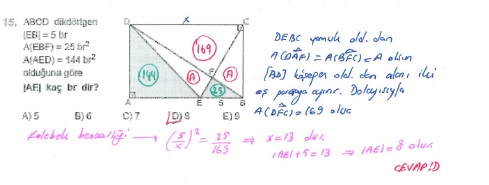 15. ABCD dikdörtgen
|EB| = 5 br
A(EBF) = 25 br²
A(AED) = 144 br²
olduğuna göre
|AE| kaç br dir?
D
x
C
169
144
A
F
A
25
A
E
5
B
A) 5 B) 6 C) 7 D) 8 E) 9
DEBC yamuk old. dan
A(DAF) = A(BFC) = A olsun
[BD] köşegen old. dan alanı iki
eş parçaya ayırır. Dolayısıyla
A(DFC) = 169 olur.
Kelebek benzerliği → (5/x)² = 25/169 ⇒ x = 13 dür.
|AE| + 5 = 13 ⇒ |AE| = 8 olur.
CEVAP: D